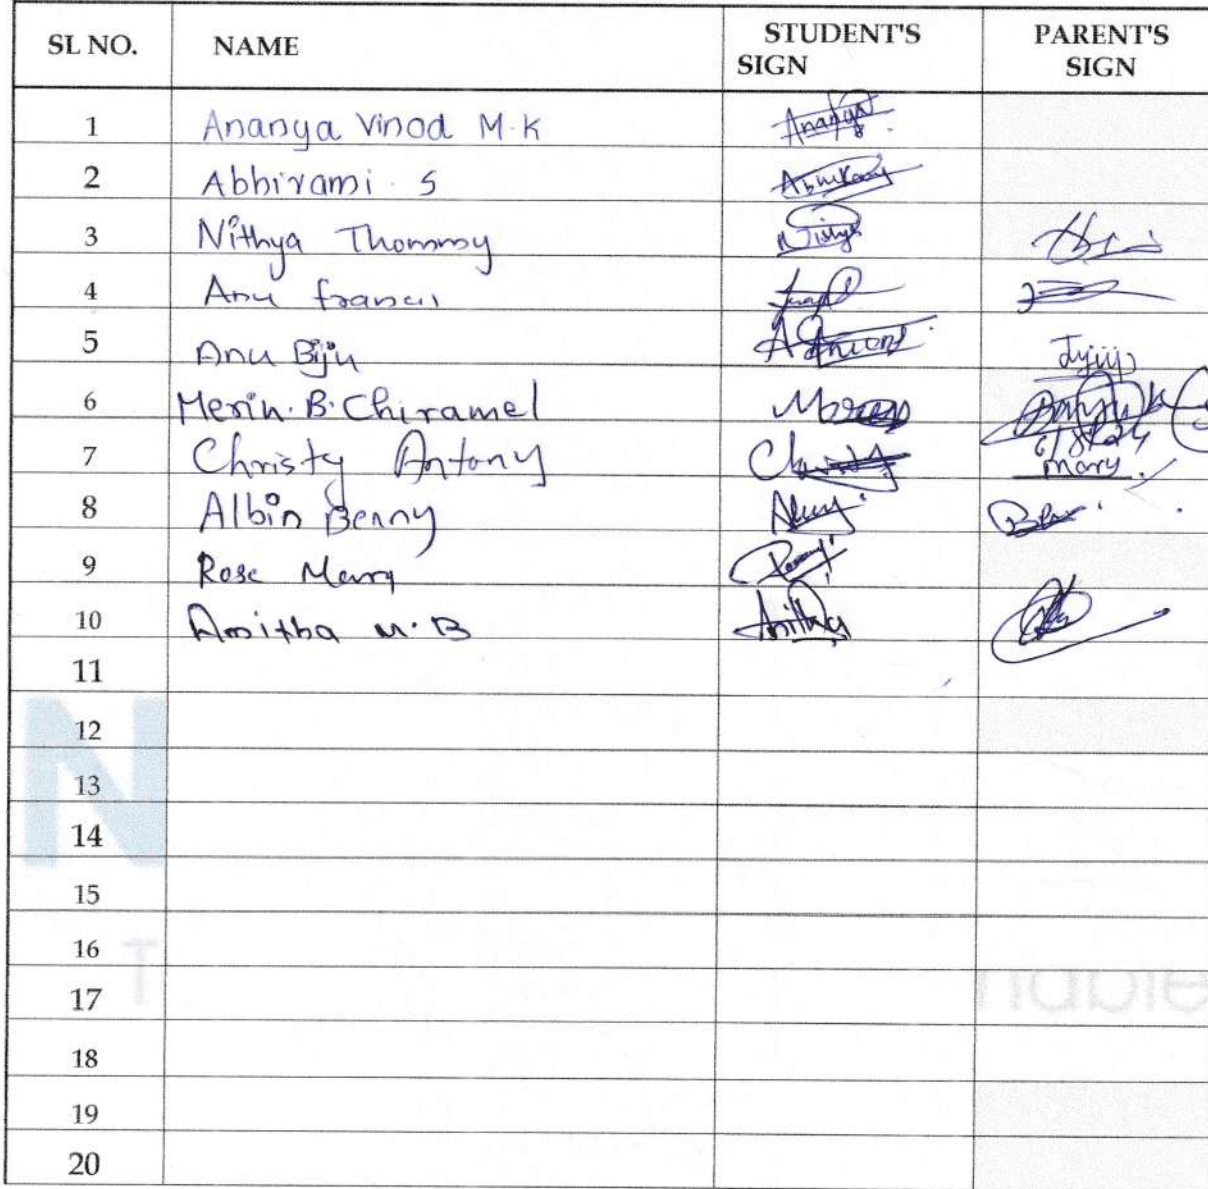 SL NO. NAME STUDENT'S SIGN PARENT'S SIGN
1 Ananya Vinod M.K Ananya
2 Abhirami. S
3 Nithya Thommy
4 Anu francis
5 Anu Biju
6 Merin. B. Chiramel
7 Christy Antony Christy Mary
8 Albin Benny
9 Rose Mary
10 Anitha M.B Anitha
11
12
13
14
15
16
17
18
19
20
N
T nable